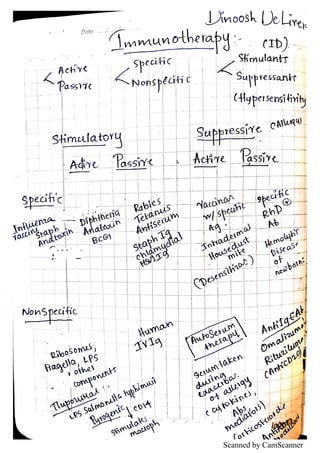 Dinoosh De Livera
Date:
Immunotherapy:-
(ID)
Active
Passive
Specific
Nonspecific
Stimulants
Suppressants
(Hypersensitivity
(Allergy)
Stimulatory
Suppressive
Active Passive
Active Passive
Specific
Influenza
vaccine
Staph
Anatoxin
Diphtheria
Anatoxin
BCG
Rabies
Tetanus
Antiserum
Staph Ig
chlamydial
Vaccines
w/ specific
Ag.
Intradermal
House dust
mite
(Desensitiser)
Specific
RhD
Ab
Hemolytic
Disease
of
newborn
NonSpecific
Ribosomes,
Flagella, LPS
, other
components
LPS Salmonella typhimuri
Pyrogenic
CD14
stimulate
macroph
Human
IVIg
AutoSerum
therapy
Serum taken
during
exacerba.
of allergy
(cytokines,
Abs
mediators)
AntiIgEAb
Omalizuma
Rituzilum
(AntiCD20)
Corticosteroids
Scanned by CamScanner